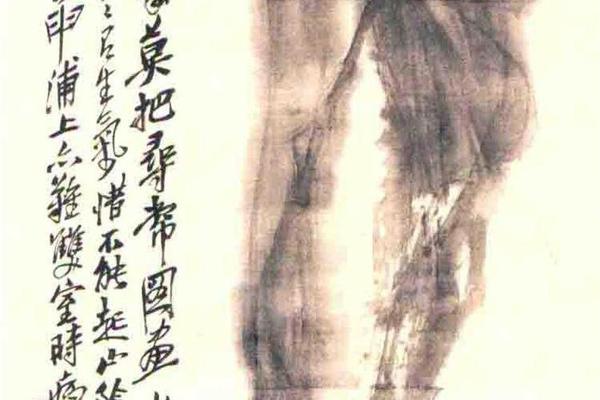 莫把尋常圖畫
生氣惜不能起
申浦上亦難雙室時